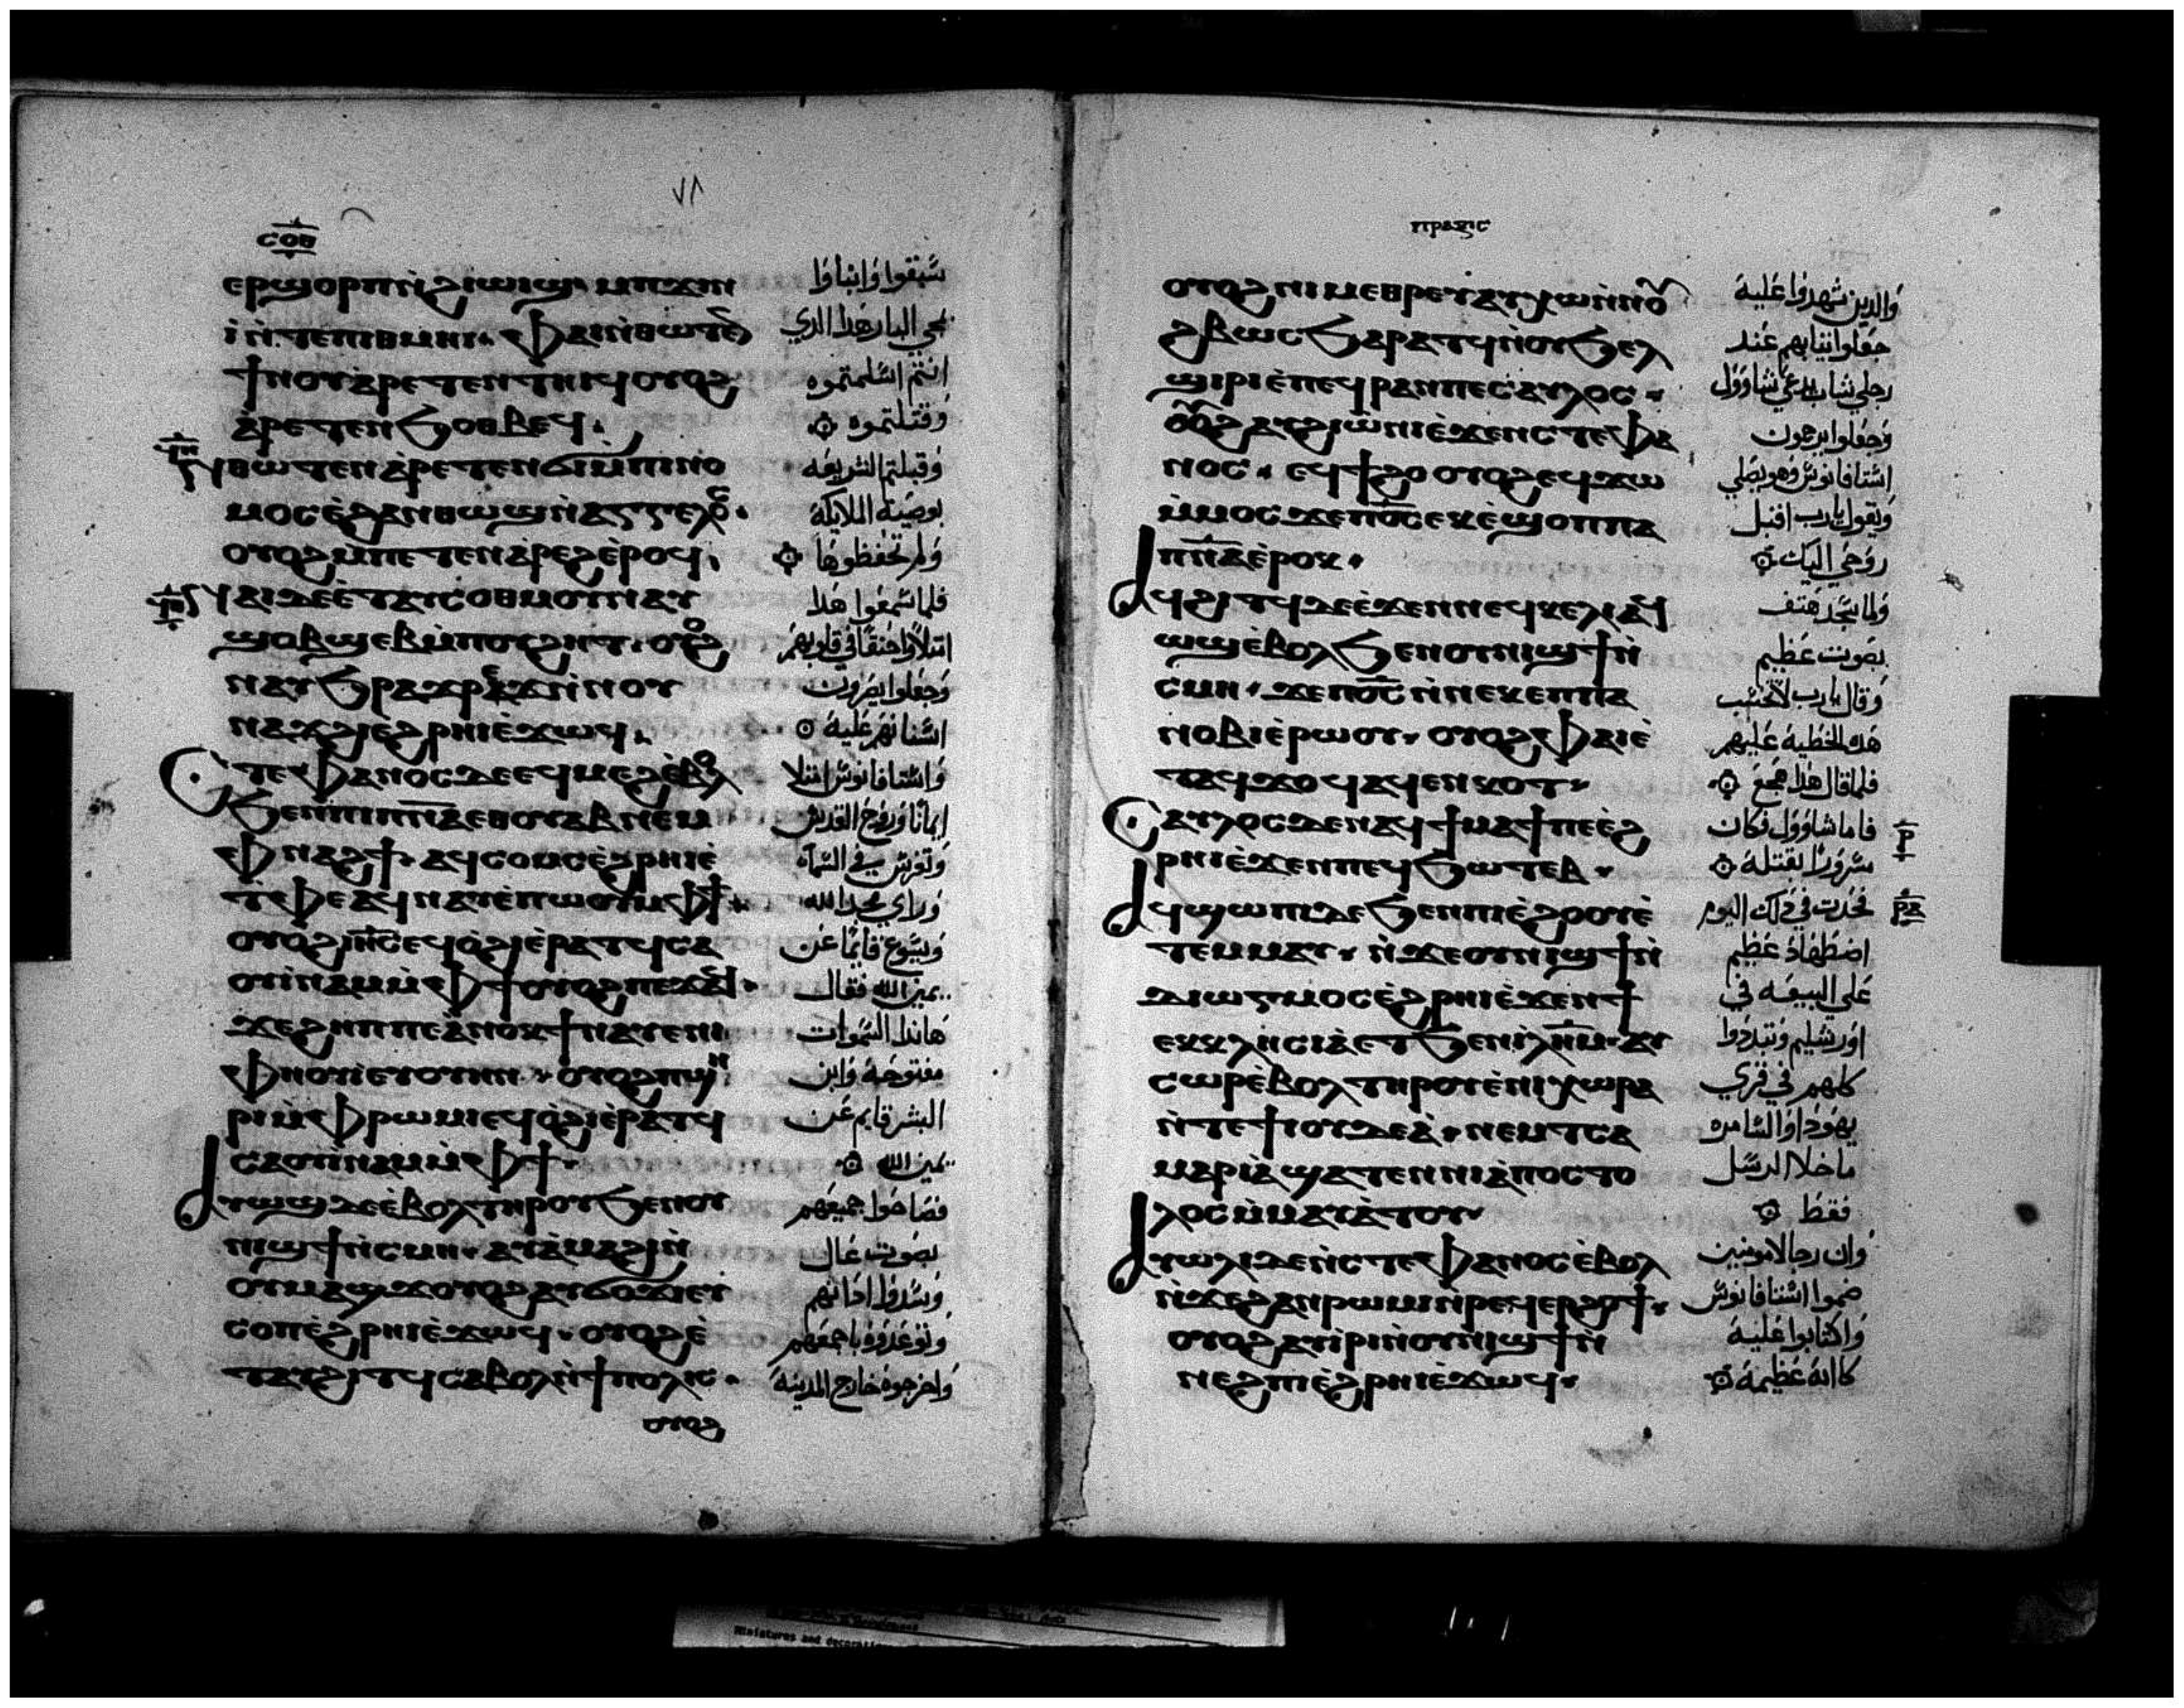 ٧٨
ⲥⲟⲃ
ⲉⲣϣⲟⲣⲡⲛ̀ϩⲓⲱⲓϣ ⲙⲡϫⲓⲛ
ⲓ̀ ⲛ̀ⲧⲉⲡⲓⲑⲙⲏⲓ ⲫⲁⲓⲛ̀ⲑⲱⲧⲉⲛ
ϯⲛⲟⲩ ⲁ̀ⲣⲉⲧⲉⲛⲧⲏⲓϥ ⲟⲩⲟϩ
ⲁ̀ⲣⲉⲧⲉⲛϧⲟⲑⲃⲉϥ
ⲛ̀ⲑⲱⲧⲉⲛ ⲁ̀ⲣⲉⲧⲉⲛϭⲓⲙ̀ⲡⲓⲛⲟ
ⲙⲟⲥ ⲉ̀ϩⲁⲛⲑⲱϣ ⲛ̀ⲁⲅⲅⲉⲗⲟⲥ
ⲟⲩⲟϩ ⲙⲡⲉⲧⲉⲛⲁ̀ⲣⲉϩ ⲉ̀ⲣⲟϥ
ⲛⲁⲓⲇⲉ ⲉ̀ⲧⲁⲩⲥⲟⲑⲙⲟⲩ ⲛⲁⲩ
ϣⲟⲃϣⲉⲃ ⲙ̀ⲡⲟⲩϩⲏⲧ ⲟⲩⲟϩ
ⲛⲁⲩϧⲣⲁϫⲣⲉϫ ⲛ̀ⲛⲟⲩ
ⲛⲁϫϩⲓ ⲉϩⲣⲏⲓ ⲉ̀ϫⲱϥ
Ⲥⲧⲉⲫⲁⲛⲟⲥⲇⲉ ⲉϥⲙⲉϩ ⲉ̀ⲃⲟⲗ
ϧⲉⲛⲡⲓⲡⲛⲁ ⲉⲑⲟⲩⲁⲃ ⲛⲉⲙ
ⲫⲛⲁϩϯ ⲁϥⲥⲟⲙⲥ ⲉ̀ϩⲣⲏⲓ ⲉ̀
ⲧⲫⲉ ⲁϥⲛⲁⲩ ⲉ̀ⲡⲱⲟⲩ ⲙⲫϯ
ⲟⲩⲟϩ ⲓⲏⲥ ⲉϥⲟ̀ϩⲓ ⲉ̀ⲣⲁⲧϥ ⲥⲁ
ⲟⲩⲓ̀ⲛⲁⲙ ⲙ̀ⲫϯ ⲟⲩⲟϩ ⲡⲉϫⲁϥ
ϫⲉϩⲏⲡⲡⲉ ⲁ̀ⲛⲟⲕ ϯⲛⲁⲩ ⲉⲛⲓ
ⲫⲏⲟⲩⲓ ⲉⲩⲟⲩⲏⲛ ⲟⲩⲟϩ ⲡϣⲏ
ⲣⲓ ⲙ̀ⲫⲣⲱⲙⲓ ⲉϥⲟ̀ϩⲓ ⲉ̀ⲣⲁⲧϥ
ⲥⲁⲟⲩⲓ̀ⲛⲁⲙ ⲙ̀ⲫϯ
Ⲁⲩⲱϣⲇⲉ ⲉ̀ⲃⲟⲗ ⲧⲏⲣⲟⲩ ϧⲉⲛⲟⲩ
ⲛⲓϣϯ ⲛ̀ⲥⲙⲏ ⲁⲩⲁ̀ⲙⲁϩⲓ ⲛ̀
ⲟⲩⲙⲁϣϫ ⲟⲩⲟϩ ⲁⲩϭⲟϫⲓ ⲉⲩ
ⲥⲟⲡ ⲉ̀ϩⲣⲏⲓ ⲉ̀ϫⲱϥ ⲟⲩⲟϩ ⲉ̀
ⲧⲁⲩϩⲓⲧϥ ⲥⲁⲃⲟⲗ ⲛ̀ϯⲡⲟⲗⲓⲥ
ⲟⲩⲟϩ
سَبَقوا وَانباوَا
بمجي البار هَذا الدي
انتم اسلمتموه
وَقتلتموه
وَقبلتم الشريعَه
بوصَية الملايكة
وَلم تحفظوهَا
فلما سَمعَوا هَذا
امتلاوا حنقًا في قلوبهم
وَجعَلوا يصَرون
اسَنانهم عَليه
وَاسَتافانوسَ امتلا
ايمانًا وَروحَ القدسَ
وَتفرسَ في السَمآء
وَراي مجد الله
وَيسَوع قايمًا عَن
يمين الله فقال
هَاندا السَموات
مفتوحَة وَابن
البشر قايم عَن
يمين الله
فصَاحَوا جميعَهم
بصَوت عَال
وَسَدوا اذانهم
وَتوعَدوه باجمعَهم
وَاخرجوه خارج المدينة
ⲡⲣⲁⲝⲓⲥ
ⲟⲩⲟϩ ⲛⲓⲙⲉⲑⲣⲉⲩ ⲁⲩⲭⲱ ⲛ̀ⲛⲟⲩ
ϩⲃⲱⲥ ϧⲁⲣⲁⲧϥ ⲛ̀ⲟⲩϧⲉⲗ
ϣⲓⲣⲓ ⲉ̀ⲡⲉϥⲣⲁⲛ ⲡⲉ ⲥⲁⲩⲗⲟⲥ
ⲟⲩⲟϩ ⲁⲩϩⲓⲱ̀ⲛⲓ ⲉ̀ϫⲉⲛ ⲥⲧⲉⲫⲁ
ⲛⲟⲥ ⲉϥϯϩⲟ ⲟⲩⲟϩ ⲉϥϫⲱ
ⲙ̀ⲙⲟⲥ ϫⲉ ⲡⲟ̅ⲥ̅ ⲉⲕⲉ̀ϣⲟⲡ ⲡⲁ
ⲡⲛ̅ⲁ̅ ⲉ̀ⲣⲟⲕ
Ⲁϥϩⲓⲧϥⲇⲉ ⲉ̀ϫⲉⲛ ⲛⲉϥⲕⲉⲗⲓ ⲁϥ
ⲱϣ ⲉ̀ⲃⲟⲗ ϧⲉⲛ ⲟⲩⲛⲓϣϯ ⲛ̀
ⲥⲙⲏ ϫⲉ ⲡⲟ̅ⲥ̅ ⲛ̀ⲛⲉⲕⲉⲡ ⲡⲁ
ⲛⲟⲃⲓ ⲉ̀ⲣⲱⲟⲩ ⲟⲩⲟϩ ⲫⲁⲓ ⲉ̀
ⲧⲁϥϫⲟϥ ⲁϥⲉⲛⲕⲟⲧ
Ⲥⲁⲩⲗⲟⲥⲇⲉ ⲛⲁϥϯⲙⲁϯ ⲡⲉ ⲉϩ
ⲣⲏⲓ ⲉ̀ϫⲉⲛ ⲡⲉϥϧⲱⲧⲉⲃ
Ⲁϥϣⲱⲡⲓⲇⲉ ϧⲉⲛ ⲡⲓⲉ̀ϩⲟⲟⲩ ⲉ̀
ⲧⲉⲙⲙⲁⲩ ⲛ̀ϫⲉ ⲟⲩⲛⲓϣϯ ⲛ̀
ⲇⲓⲱⲅⲙⲟⲥ ⲉ̀ϩⲣⲏⲓ ⲉ̀ϫⲉⲛ ϯ
ⲉⲕⲕⲗⲏⲥⲓⲁ̀ ⲉⲧϧⲉⲛ ⲓⲗⲏⲙ ⲁⲩ
ⲥⲱⲣ ⲉ̀ⲃⲟⲗ ⲧⲏⲣⲟⲩ ⲉ̀ⲛⲓⲭⲱⲣⲁ
ⲛ̀ⲧⲉ ϯⲓⲟⲩⲇⲉⲁ̀ ⲛⲉⲙ ⲧⲥⲁ
ⲙⲁⲣⲓⲁ̀ ϣⲁⲧⲉⲛ ⲛⲓⲁ̀ⲡⲟⲥⲧⲟ
ⲗⲟⲥ ⲙ̀ⲙⲁⲩⲁ̀ⲧⲟⲩ
Ⲁⲩⲱⲗⲓⲇⲉ ⲛ̀ⲥⲧⲉⲫⲁⲛⲟⲥ ⲉ̀ⲃⲟⲗ
ⲛ̀ϫⲉ ϩⲁⲛⲣⲱⲙⲓ ⲛ̀ⲣⲉϥⲉⲣϩⲟϯ
ⲟⲩⲟϩ ⲁⲩⲓ̀ⲣⲓ ⲛ̀ⲟⲩⲛⲓϣϯ ⲛ̀
ⲛⲉϩⲡⲓ ⲉ̀ϩⲣⲏⲓ ⲉ̀ϫⲱϥ
وَالدين شهدوا عَليه
جعَلوا ثيابهم عَند
رجلي شاب يدعَي شاوَول
وَجعَلوا يرجمون
اسَتافانوسَ وَهو يصَلي
وَيقول يارب اقبل
روحَي اليك
وَلما سَجد هَتف
بصَوت عَظيم
وَقال يارب لا تحتسَب
هَذه الخطية عَليهم
فلما قال هَذا هجعَ
فاما شاوَول فكان
مسَرورًا بقتله
فحَدث في ذلك اليوم
اضطهَاد عَظيم
عَلي البيعَه في
اوَرشليم وَتبددوا
كلهم في قري
يهَودا وَالسَامره
ما خلا الرسَل
فقط
وَان رجالا مومنين
ضموا اسَتافانوسَ
وَاكتابوا عَليه
كابة عَظيمة
ⲣ
ⲣⲁ